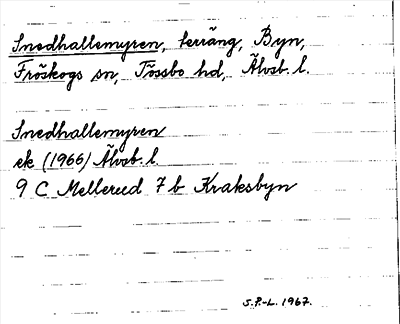 Snedhallemyren, terräng, Byn,
Fröskogs sn, Tössbo hd, Älvsb. l.
Snedhallemyren
ek (1966) Älvsb. l.
9 C Mellerud 7 b Kraksbyn
S.P.-L. 1967.